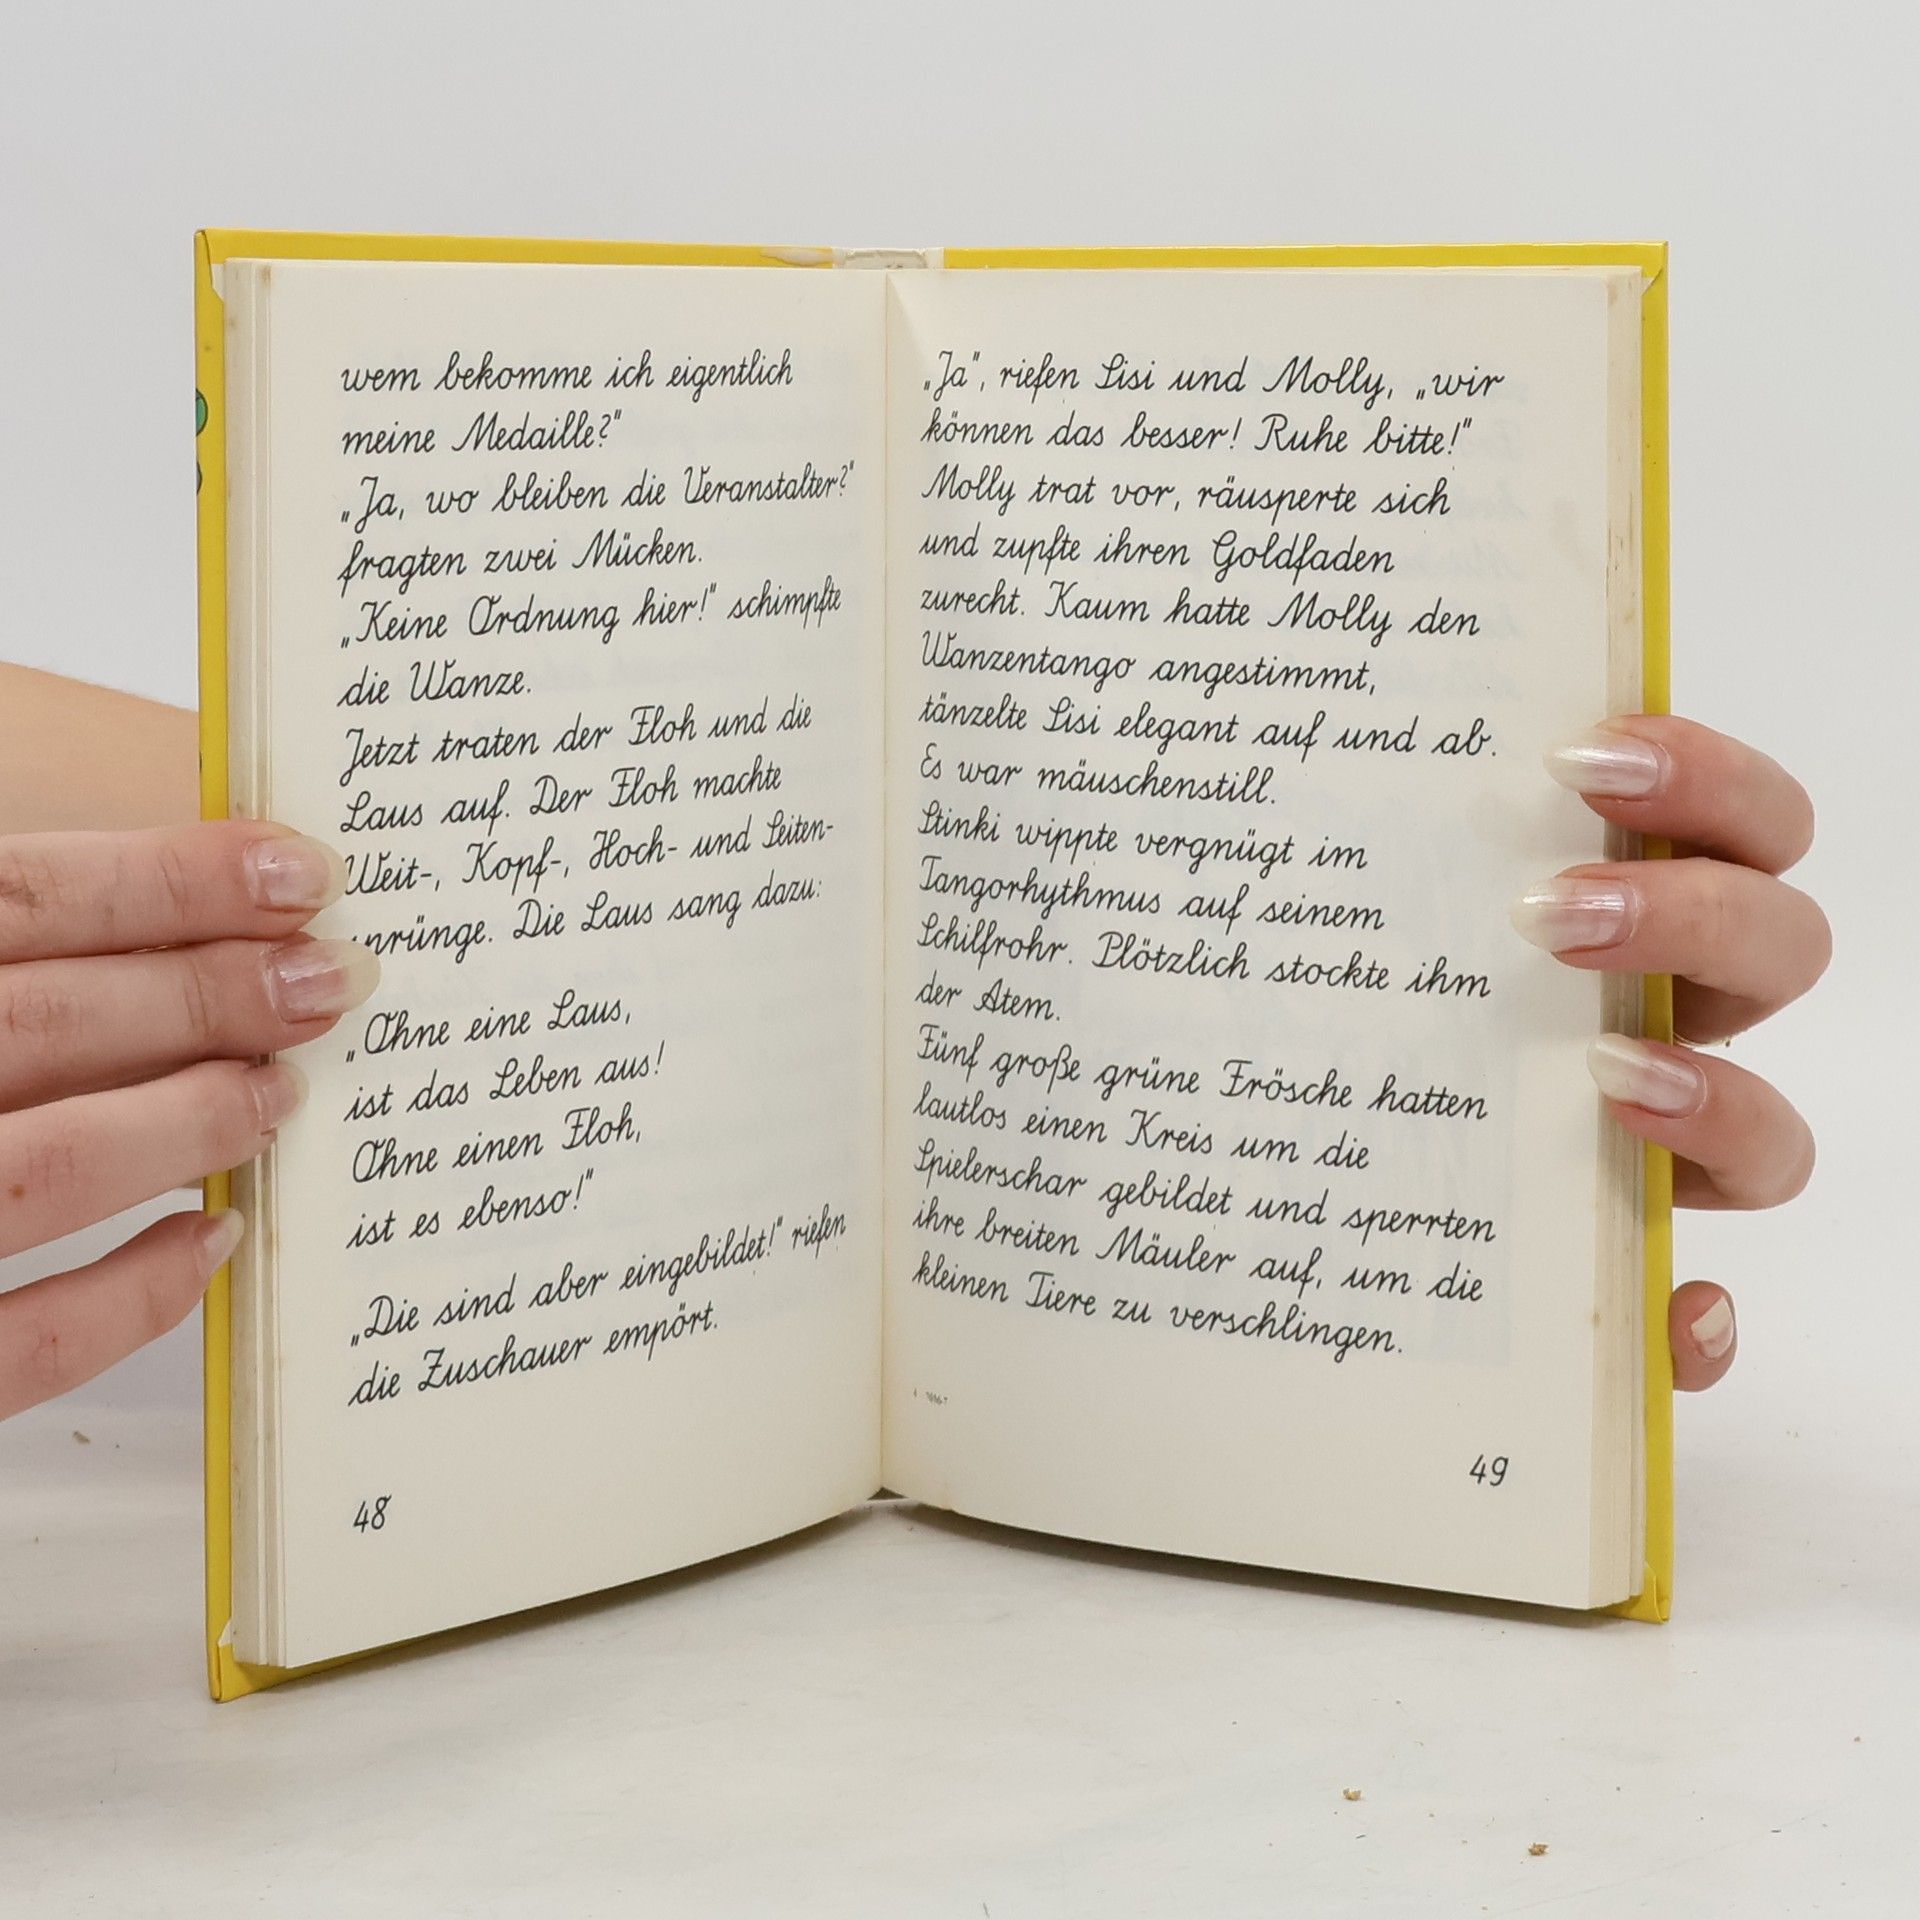 wem bekomme ich eigentlich
meine Medaille?"
„Ja, wo bleiben die Veranstalter?"
fragten zwei Mücken.
„Keine Ordnung hier!" schimpfte
die Wanze.
Jetzt traten der Floh und die
Laus auf. Der Floh machte
Weit-, Kopf-, Hoch- und Seiten-
sprünge. Die Laus sang dazu:
„Ohne eine Laus,
ist das Leben aus!
Ohne einen Floh,
ist es ebenso!"
„Die sind aber eingebildet!" riefen
die Zuschauer empört.
48
„Ja", riefen Sisi und Molly, „wir
können das besser! Ruhe bitte!"
Molly trat vor, räusperte sich
und zupfte ihren Goldfaden
zurecht. Kaum hatte Molly den
Wanzentango angestimmt,
tänzelte Sisi elegant auf und ab.
Es war mäuschenstill.
Stinki wippte vergnügt im
Tangorhythmus auf seinem
Schilfrohr. Plötzlich stockte ihm
der Atem.
Fünf große grüne Frösche hatten
lautlos einen Kreis um die
Spielerschar gebildet und sperrten
ihre breiten Mäuler auf, um die
kleinen Tiere zu verschlingen.
49